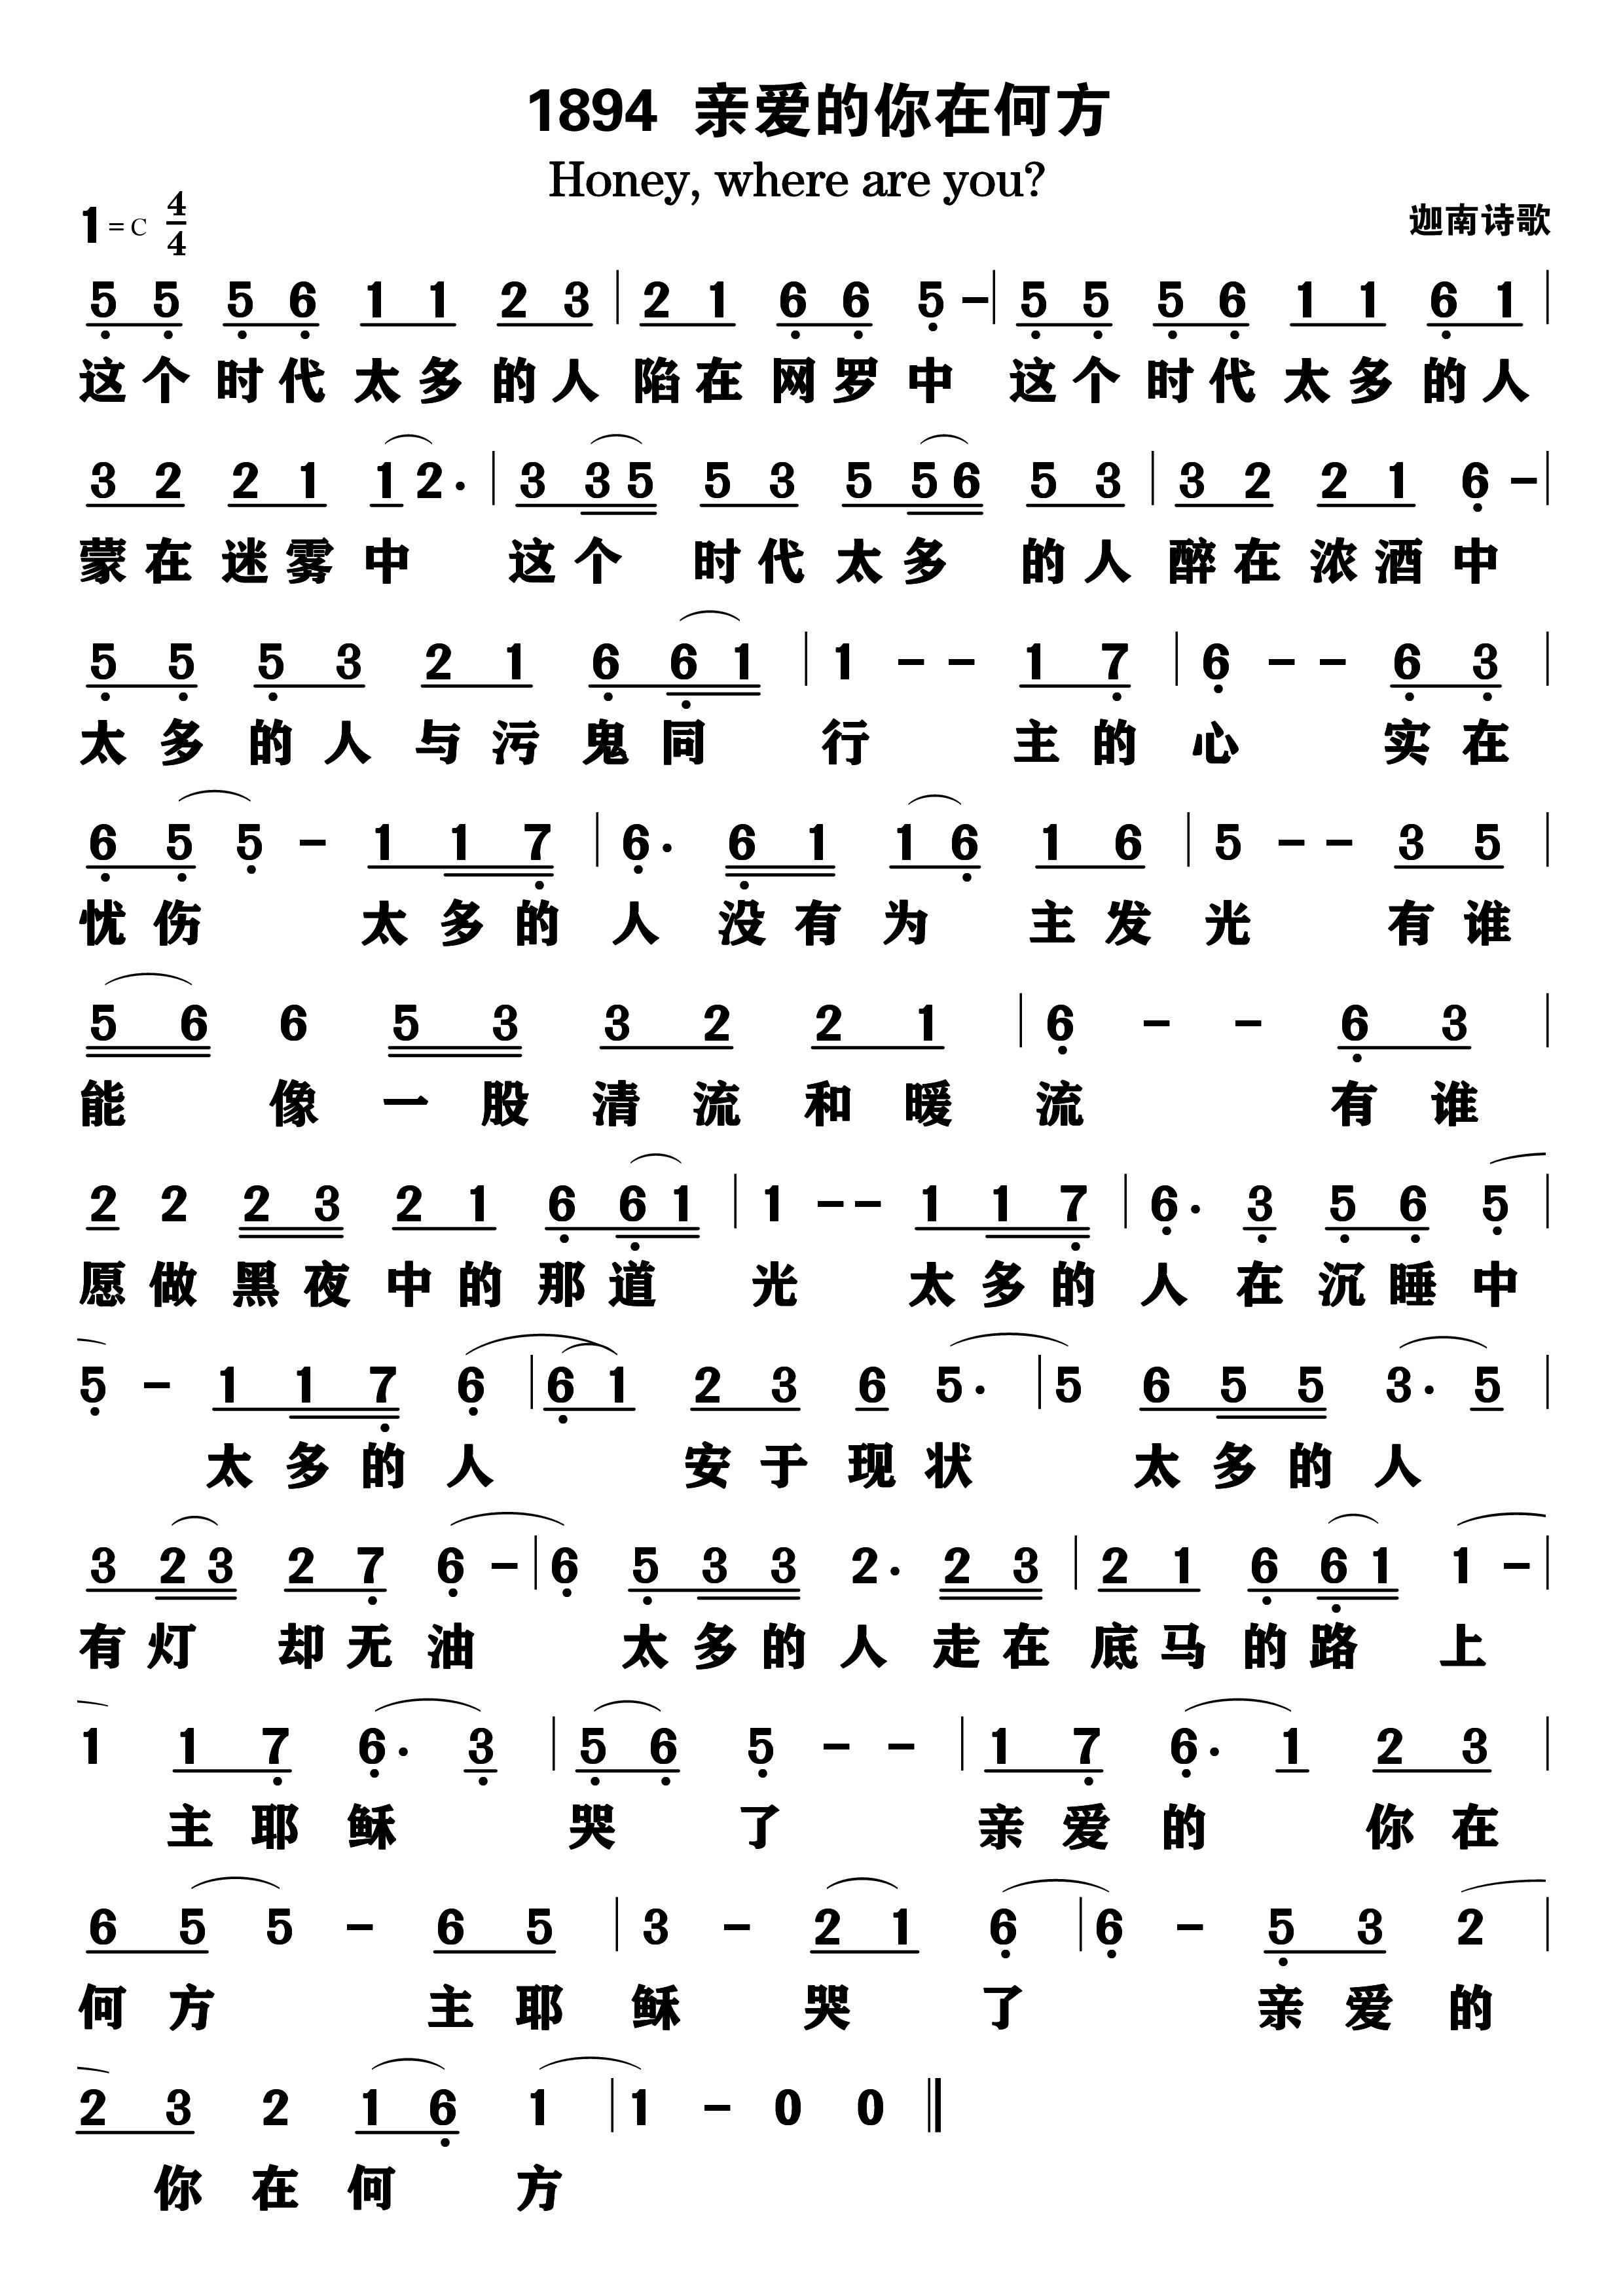 1894 亲爱的你在何方
Honey, where are you?
1 = C 4/4
迦南诗歌
5 5 5 6 1 1 2 3 | 2 1 6 6 5 – | 5 5 5 6 1 1 6 1 |
这个时代太多的人陷在网罗中 这个时代太多的人
3 2 2 1 1 2 · | 3 3 5 5 3 5 5 6 5 3 | 3 2 2 1 6 – |
蒙在迷雾中 这个 时代太多 的人 醉在浓酒中
5 5 5 3 2 1 6 6 1 | 1 – – 1 7 | 6 – – 6 3 |
太多的人与污鬼同 行 主的 心 实在
6 5 5 – 1 1 7 | 6 · 6 1 1 6 1 6 | 5 – – 3 5 |
忧伤 太多的 人 没有为 主发 光 有谁
5 6 6 5 3 3 2 2 1 | 6 – – 6 3 |
能 像 一股清流和暖 流 有谁
2 2 2 3 2 1 6 6 1 | 1 – – 1 1 7 | 6 · 3 5 6 5 |
愿做黑夜中的那道 光 太多的 人 在沉睡中
5 – 1 1 7 6 | 6 1 2 3 6 5 · | 5 6 5 5 3 · 5 |
太多的人 安于现状 太多的人
3 2 3 2 7 6 – | 6 5 3 3 2 · 2 3 | 2 1 6 6 1 1 – |
有灯 却无油 太多的人走在底马的路 上
1 1 7 6 · 3 | 5 6 5 – – | 1 7 6 · 1 2 3 |
主耶稣 哭 了 亲爱的 你在
6 5 5 – 6 5 | 3 – 2 1 6 | 6 – 5 3 2 |
何方 主耶稣 哭 了 亲爱的
2 3 2 1 6 1 | 1 – 0 0 ‖
你在何 方